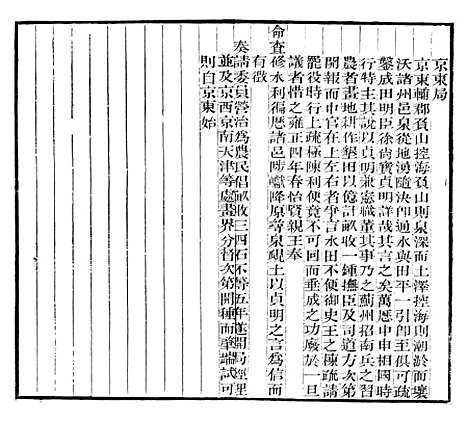 京東局
京東輔郡負山控海負山則泉深而土澤控海則潮淤而壤
沃諸州邑泉從地湧隨決即通水與田平一引即至俱可疏
鑿成田明臣徐尚寶貞明詳哉其言之矣萬歷中申相國時
行特主其說以貞明兼憲職董其事乃之薊州招南兵之習
農者畫地耕作墾田以億計畝收一鍾撫臣及司道方次第
開報而中官在上左右者爭言水田不便御史王之棟疏請
罷役時行上疏極陳利便竟不可回而垂成之功廢於一旦
議者惜之雍正四年春怡賢親王奉
命查修水利徧歷諸邑陟巘降原等泉覛土以貞明之言為信而
有徵
奏請委員營治為農民倡畝收三四石不等五年遂開局經理
並及京西京南天津等處畫界分督次第開種而肇端試可
則自京東始